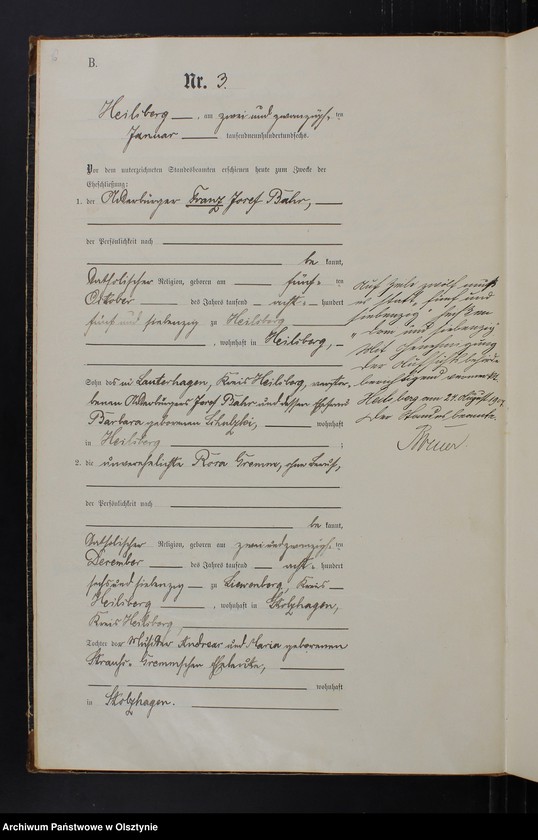 B.
Nr. 3.
Heilsberg, am zwei und zwanzigsten
Januar tausendneunhundertundsechs.
Vor dem unterzeichneten Standesbeamten erschienen heute zum Zwecke der
Eheschließung:
1. der Ackerbürger Franz Josef Bahr,
der Persönlichkeit nach
be kannt,
katholischer Religion, geboren am fünf ten
Oktober des Jahres tausend acht hundert
fünf und siebenzig zu Heilsberg
, wohnhaft in Heilsberg,
Sohn des in Lauterhagen, Kreis Heilsberg, verstor-
benen Ackerbürgers Josef Bahr und dessen Ehefrau
Barbara geborenen wohnhaft
in Heilsberg ;
2. die unverehelichte Rosa Gremm, ohne Beruf,
der Persönlichkeit nach
be kannt,
katholischer Religion, geboren am zwei und zwanzigsten
Dezember des Jahres tausend acht hundert
sechs und siebenzig zu Liewenberg, Kreis
Heilsberg, wohnhaft in Stolzhagen,
Kreis Heilsberg,
Tochter der Musiker Andreas und Maria geborenen
Gremmschen Eheleute,
wohnhaft
in Stolzhagen.
Auf Zeile zwölf muß
es statt "fünf und
siebenzig" heißen
und siebenzig"
Mit Genehmigung
der Aufsichtsbehörde
berichtigend vermerkt.
Heilsberg am 24. August
Der Standesbeamte.
Archiwum Państwowe w Olsztynie